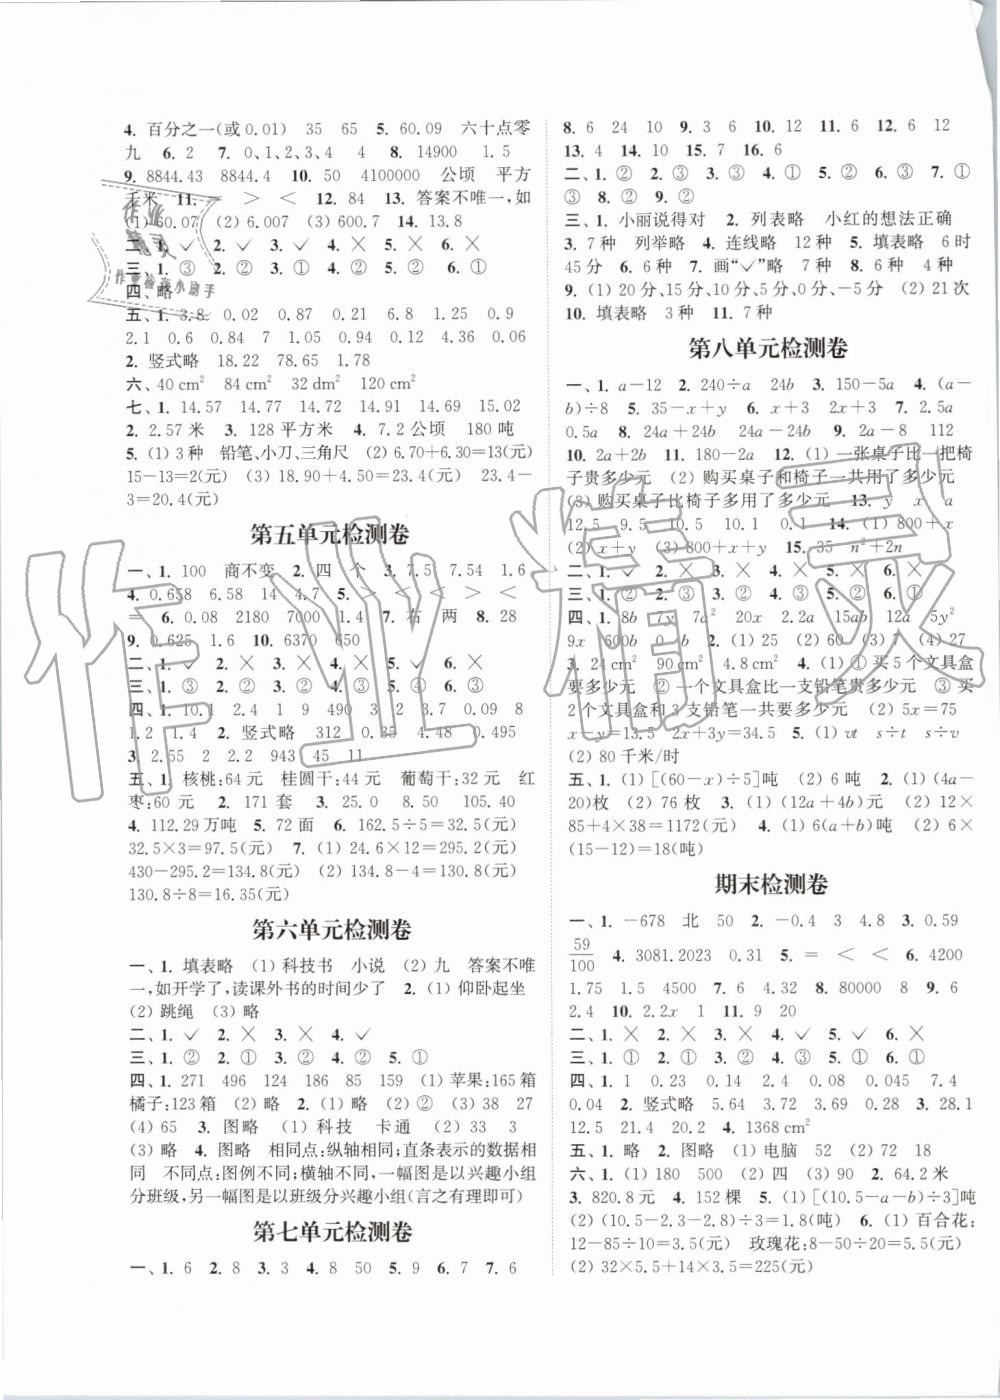 4. 百分之一(或 0.01) 35 65 5. 60.09 六十点零
九 6. 2 7. 0、1、2、3、4 4 8. 14900 1.5
9. 8844.43 8844.4 10. 50 4100000 公顷 平方
千米 11. > < 12. 84 13. 答案不唯一,如
(1)60.07 (2)6.007 (3)600.7 14. 13.8
二、1. ✓ 2. ✓ 3. ✓ 4. ✕ 5. ✕ 6. ✕
三、1. ③ 2. ② 3. ① 4. ② 5. ② 6. ①
四、略
五、1. 3.8 0.02 0.87 0.21 6.8 1.25 0.9
2.1 0.6 0.84 7 1 0.94 0.12 4.36 0.06
2. 竖式略 18.22 78.65 1.78
六、40 cm² 84 cm² 32 dm² 120 cm²
七、1. 14.57 14.77 14.72 14.91 14.69 15.02
2. 2.57 米 3. 128 平方米 4. 7.2 公顷 180 吨
5. (1)3 种 铅笔、小刀、三角尺 (2)6.70+6.30=13(元)
15-13=2(元) (3)18.90+4.50=23.4(元) 23.4-
3=20.4(元)
第五单元检测卷
一、1. 100 商不变 2. 四 个 3. 7.5 7.54 1.6
4. 0.658 6.58 14 4.7 5. > < > < >
= 6. 0.08 2180 7000 1.4 7. 右 两 8. 28
9. 0.625 1.6 10. 6370 650
二、1. ✓ 2. ✕ 3. ✕ 4. ✕ 5. ✓ 6. ✕
三、1. ③ 2. ② 3. ② 4. ③ 5. ④ 6. ③
四、1. 10.1 2.4 1 9 490 3 2 3.7 0.09 8
1.2 1.4 2. 竖式略 312 0.35 4.48 0.495
3. 2.55 2 2.2 943 45 11
五、1. 核桃:64 元 桂圆干:44 元 葡萄干:32 元 红
枣:60 元 2. 171 套 3. 25.0 8.50 105.40
4. 112.29 万吨 5. 72 面 6. 162.5÷5=32.5(元)
32.5×3=97.5(元) 7. (1)24.6×12=295.2(元)
430-295.2=134.8(元) (2)134.8-4=130.8(元)
130.8÷8=16.35(元)
第六单元检测卷
一、1. 填表略 (1)科技书 小说 (2)九 答案不唯
一,如开学了,读课外书的时间少了 2. (1)仰卧起坐
(2)跳绳 (3)略
二、1. ✓ 2. ✕ 3. ✕ 4. ✓
三、1. ② 2. ① 3. ② 4. ② 5. ①
四、1. 271 496 124 186 85 159 (1)苹果:165 箱
橘子:123 箱 (2)略 2. (1)略 (2)② (3)38 27
(4)65 3. 图略 (1)科技 卡通 (2)33 3
(3)略 4. 图略 相同点:纵轴相同;直条表示的数据相
同 不同点:图例不同;横轴不同,一幅图是以兴趣小组
分班级,另一幅图是以班级分兴趣小组(言之有理即可)
第七单元检测卷
一、1. 6 2. 8 3. 3 4. 8 50 5. 9 6. 7 7. 6
8. 6 24 10 9. 3 6 10. 12 11. 6 12. 6 12
13. 4 14. 10 15. 7 16. 6
二、1. ② 2. ③ 3. ③ 4. ② 5. ③ 6. ① 7. ①
③ 8. ② 9. ②
三、1. 小丽说得对 2. 列表略 小红的想法正确
3. 7 种 列举略 4. 连线略 12 种 5. 填表略 6 时
45 分 6. 6 种 7. 画“✓”略 7 种 8. 6 种 4 种
9. (1)20 分、15 分、10 分、5 分、0 分、-5 分 (2)21 次
10. 填表略 3 种 11. 7 种
第八单元检测卷
一、1. a-12 2. 240÷a 24b 3. 150-5a 4. (a-
b)÷8 5. 35-x+y 6. x+3 2x+3 7. 2.5a
0.5a 8. 24a+24b 24a-24b 9. 2a-8 112
10. 2a+2b 11. 180-2a 12. (1)一张桌子比一把椅
子贵多少元 (2)购买桌子和椅子一共用了多少元
(3)购买桌子比椅子多用了多少元 13. y x a
12.5 9.5 10.5 10.1 0.1 14. (1)800+x
(2)x+y (3)800+x+y 15. 35 n²+2n
二、1. ✓ 2. ✕ 3. ✕ 4. ✕ 5. ✕ 6. ✕
三、1. ② 2. ① ③ 3. ② 4. ② 5. ② 6. ①
四、1. 8b 7y 7a² 20x 2.2a 15a 12a 5y²
9x 600b 0 b 2. (1)25 (2)60 (4)27
3. 24 cm² 90 cm² 4.8 cm² 4. (1)①买 5 个文具盒
要多少元 ②一个文具盒比一支铅笔贵多少元 ③买
2 个文具盒和 3 支铅笔一共要多少元 (2)5x=75
x-y=13.5 2x+3y=34.5 5. (1)vt s÷t s÷v
(2)80 千米/时
五、1. (1)[(60-x)÷5]吨 (2)6 吨 2. (1)(4a-
20)枚 (2)76 枚 3. (1)(12a+4b)元 (2)12×
85+4×38=1172(元) 4. (1)6(a+b)吨 (2)6×
(15-12)=18(吨)
期末检测卷
一、1. -678 北 50 2. -0.4 3 4.8 3. 0.59
59/100 4. 3081.2023 0.31 5. = < < 6. 4200
1.75 1.5 4500 7. 6 4.32 8. 80000 8 9. 6
2.4 10. 2.2x 1 11. 9 20
二、1. ✕ 2. ✕ 3. ✕ 4. ✓ 5. ✓ 6. ✕
三、1. ① 2. ① 3. ② 4. ③ 5. ① 6. ②
四、1. 1 0.23 0.14 2.4 0.08 0.045 7.4
0.04 2. 竖式略 5.64 3.72 3.69 0.28 3. 28.1
12.5 21.4 20.2 4. 1368 cm²
五、1. 略 2. 图略 (1)电脑 52 (2)72 18
六、1. (1)180 500 (2)四 (3)90 2. 64.2 米
3. 820.8 元 4. 152 棵 5. (1)[(10.5-a-b)÷3]吨
(2)(10.5-2.3-2.8)÷3=1.8(吨) 6. (1)百合花:
12-85÷10=3.5(元) 玫瑰花:8-50÷20=5.5(元)
(2)32×5.5+14×3.5=225(元)
作业精灵
作业检查小助手